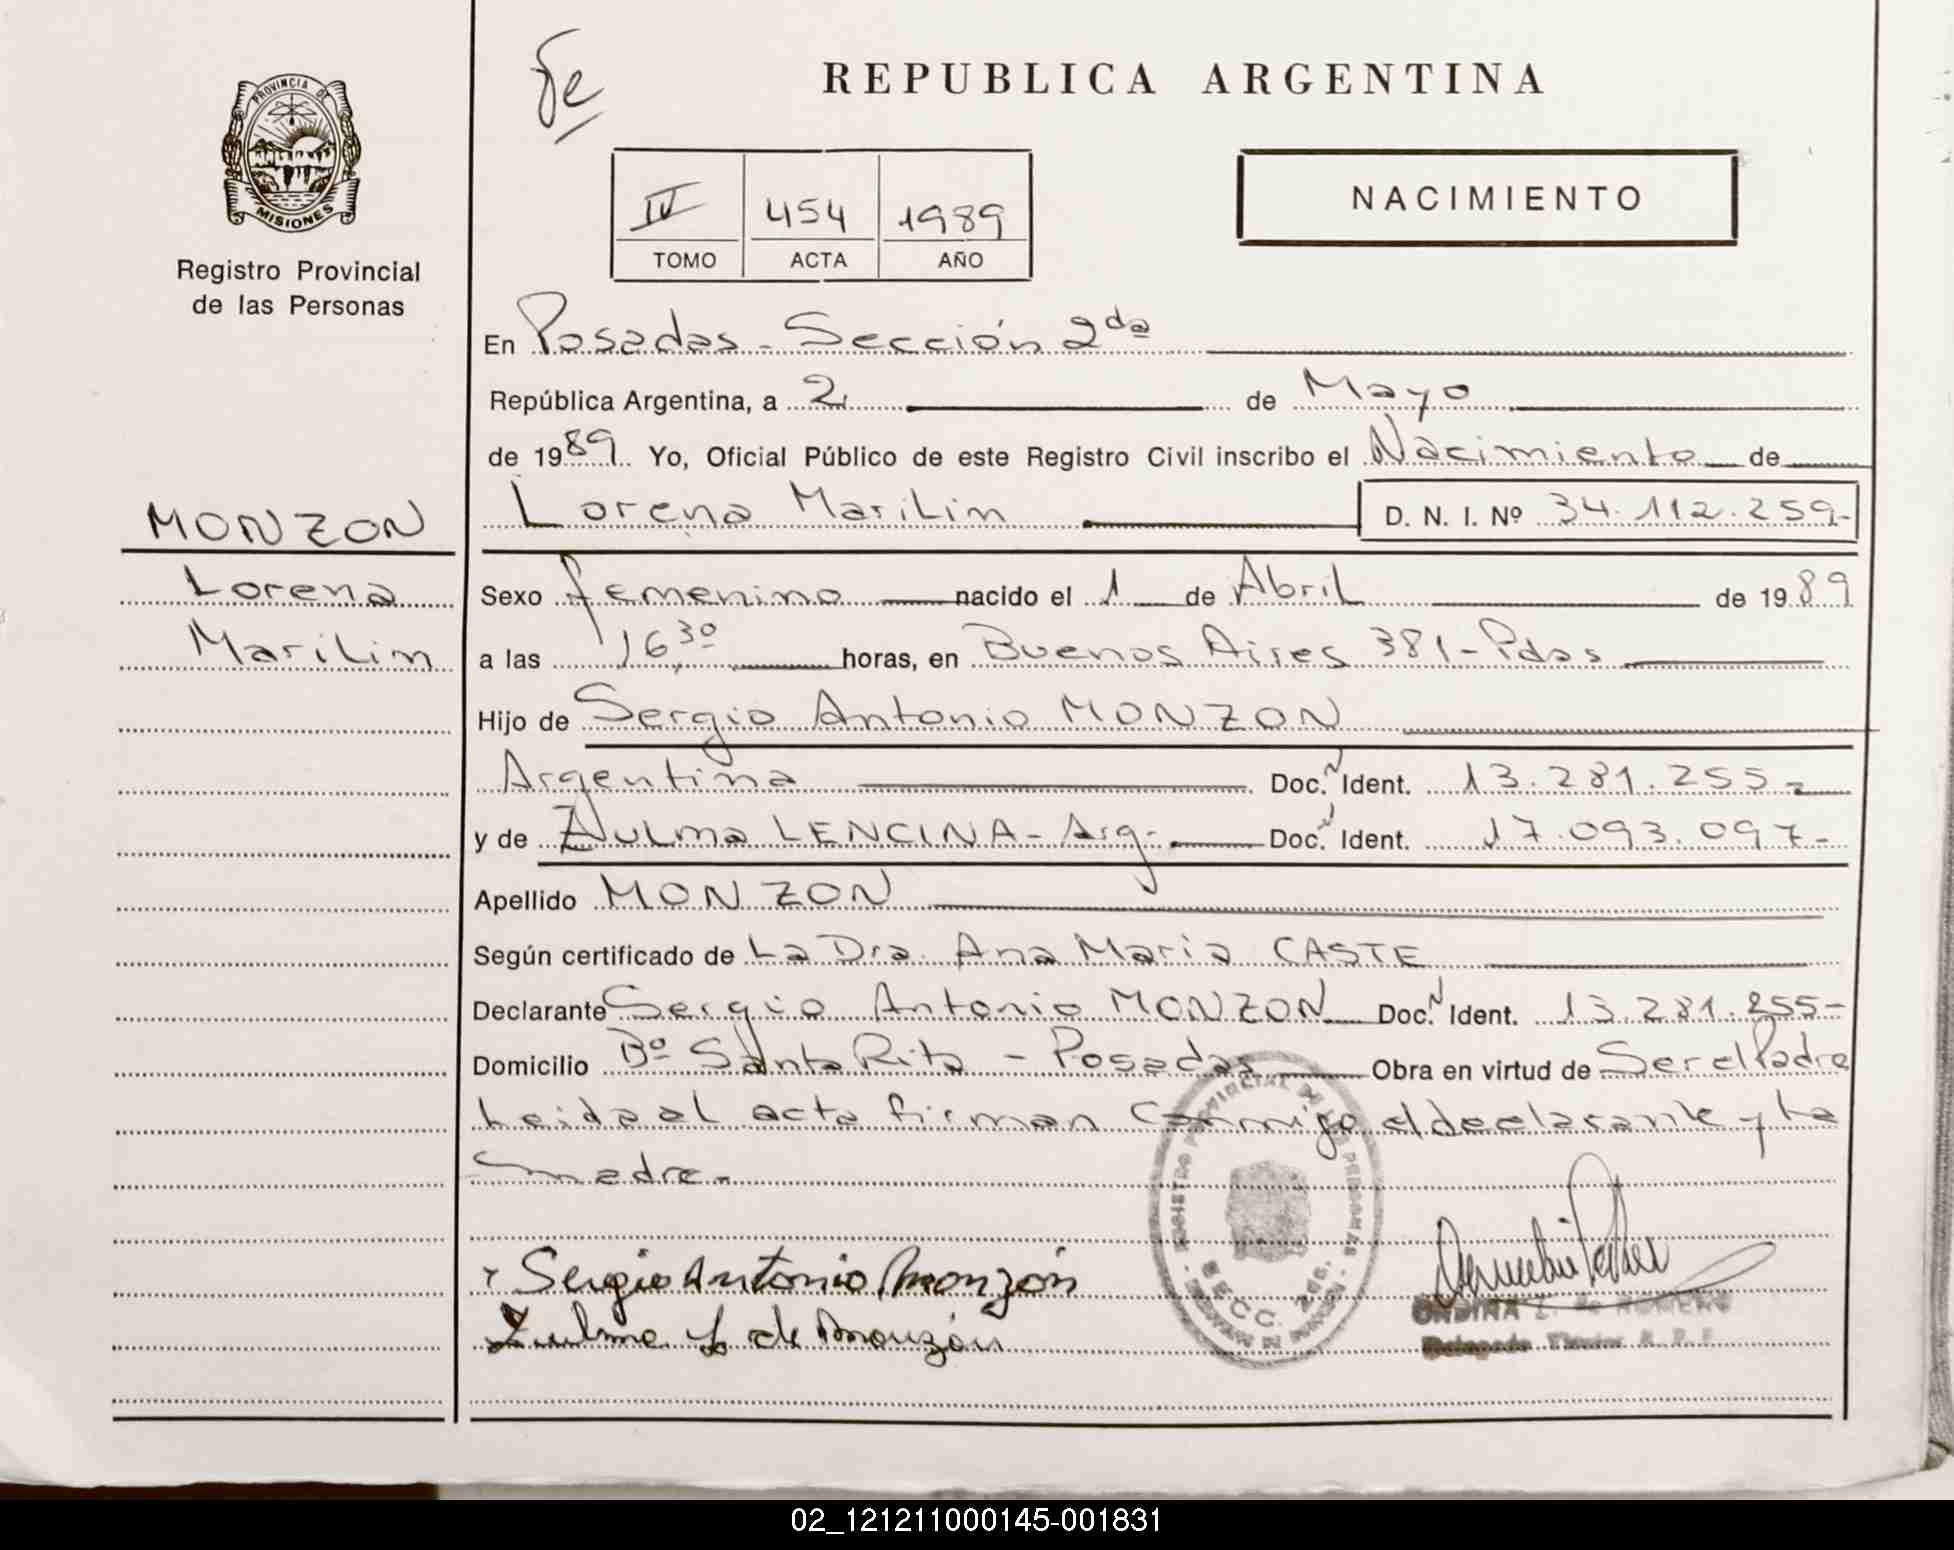 PROVINCIA DE
MISIONES
Registro Provincial
de las Personas
MONZON
Lorena
Marilin
fe
REPUBLICA ARGENTINA
IV 454 1989
TOMO ACTA AÑO
NACIMIENTO
En Posadas - Sección 2da
República Argentina, a 2 de Mayo
de 1989 Yo, Oficial Público de este Registro Civil inscribo el Nacimiento de
Lorena Marilin D. N. I. Nº 34.112.259-
Sexo femenino nacido el 1 de Abril de 1989
a las 16,30 horas, en Buenos Aires 381-Pdas
Hijo de Sergio Antonio MONZON
Argentina Doc. Ident. 13.281.255-
y de Zulma LENCINA - Arg. Doc. Ident. 17.093.097-
Apellido MONZON
Según certificado de La Dra. Ana Maria CASTE
Declarante Sergio Antonio MONZON Doc. Ident. 13.281.255-
Domicilio Bº Santa Rita - Posadas Obra en virtud de Ser el Padre
Leida el acta firman conmigo el declarante y la
madre.-
Sergio Antonio Monzón
Zulma L de Monzón
REGISTRO PROVINCIAL DE LAS PERSONAS
SECC. 2da.
ONDINA Z. de ROMERO
Delegado Titular R. P. P.
02_121211000145-001831